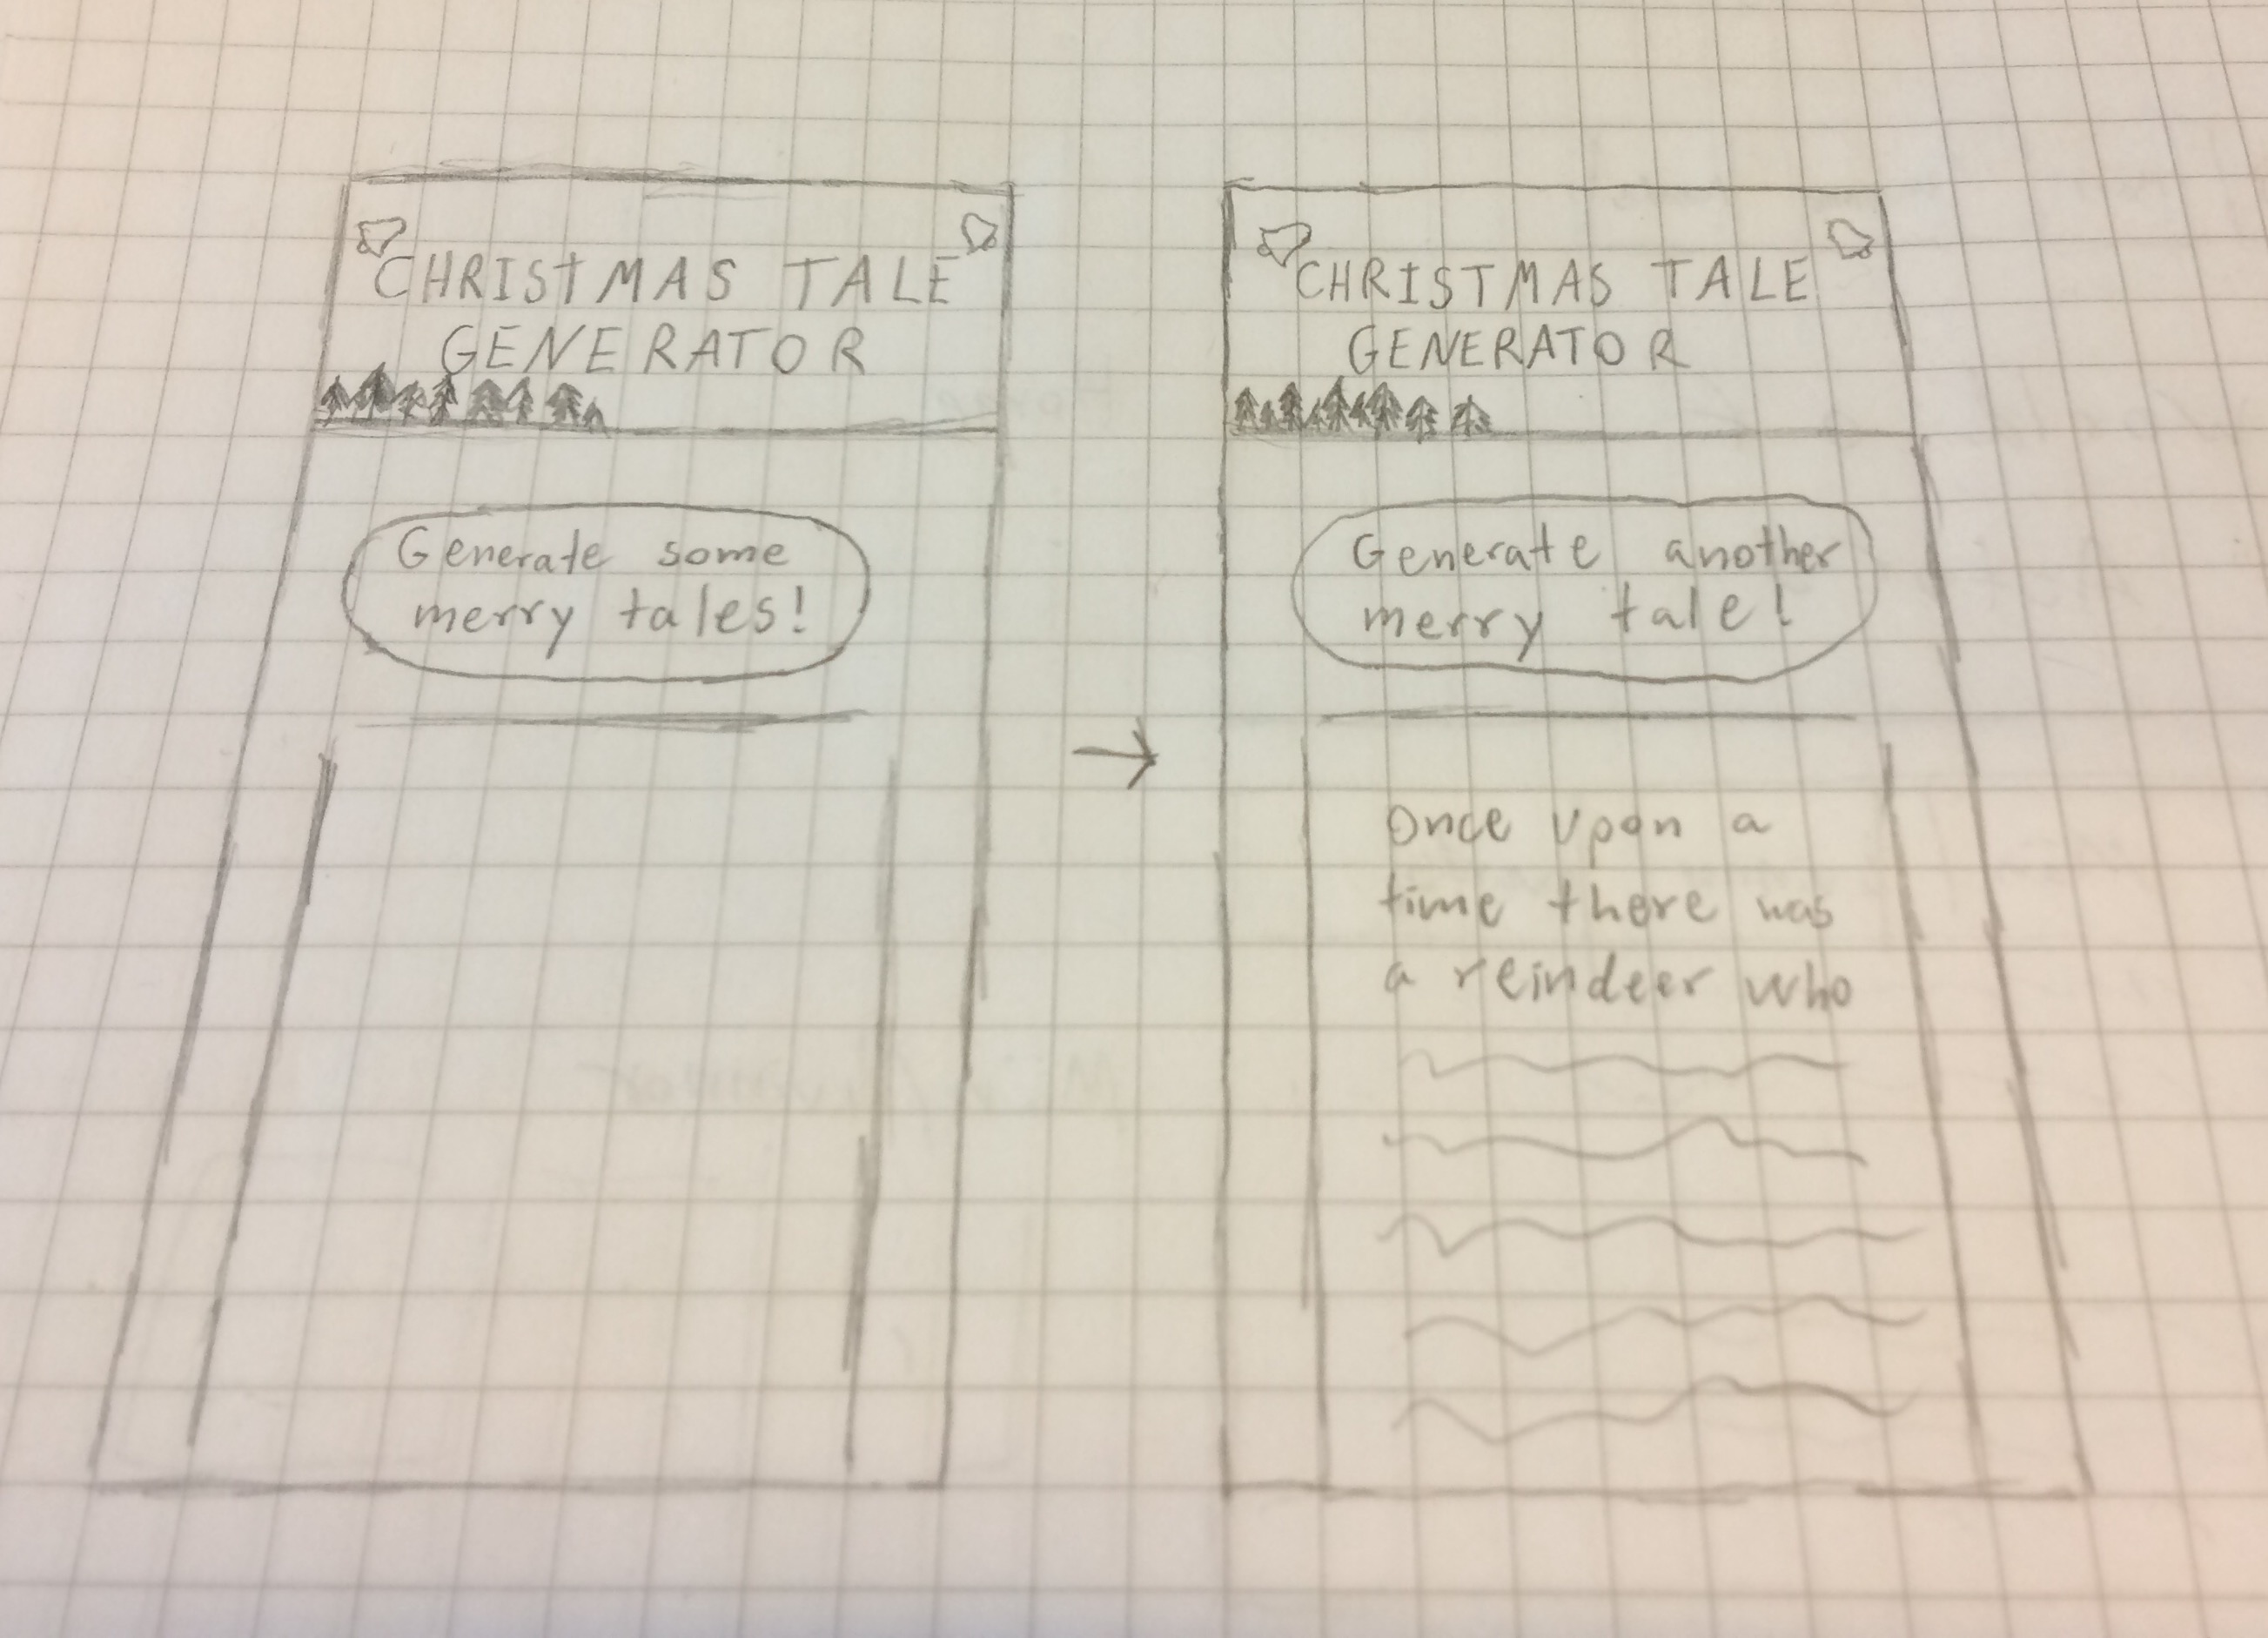 CHRISTMAS TALE
GENERATOR
Generate some
merry tales!
CHRISTMAS TALE
GENERATOR
Generate another
merry tale!
Once upon a
time there was
a reindeer who